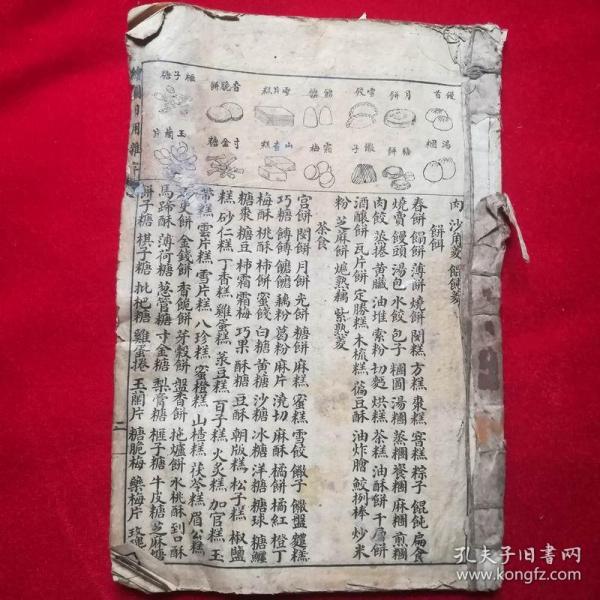 饅首
月餅
雪餃
雪片糕
香脆餅
榧子糖
湯糰
糖餅
饊子
霜梅
山查糕
寸金糖
玉蘭片
繪圖日用雜字
肉 沙角菱 餛飩菱
餅餌
春餅 餡餅 薄餅 燒餅 閔糕 方糕 棗糕 宮糕 粽子 餛飩 扁食
燒賣 饅頭 湯包 水餃 包子 糰圓 湯糰 蒸糰 餐糰 麻糰 煎糰
肉餃 蒸捲 黃臟 油堆 索粉 切麪 烘糕 茶糕 油酥餅 千層餅
酒釀餅 瓦片餅 定勝糕 木梳糕 藊豆酥 油炸膾 鮫捌棒 炒米
粉 芝麻餅 熝熟藕 紫熟菱
茶食
宮餅 閔餅 月餅 光餅 糖餅 麻糕 蜜糕 雪餃 饊子 饊盤 麵糕
巧糖 餺餺 饝饝 藕粉 葛粉 麻片 澆切 麻酥 橘餅 橘紅 橙丁
梅酥 桃酥 柿餅 蜜餞 白糖 黃糖 沙糖 冰糖 洋糖 糖球 糖纏
糖棗 糖豆 柿霜 霜梅 巧果 酥糖 豆酥 朝版糕 松子糕 椒鹽
糕 砂仁糕 丁香糕 雞蛋糕 菉豆糕 百子糕 火炙糕 加官糕 玉
帶糕 雲片糕 雪片糕 八珍糕 蜜橙糕 山楂糕 茯苓糕 眉公糕
餅 金錢餅 香脆餅 芽穀餅 盤香餅 拖爐餅 水桃酥 到口酥
馬蹄酥 薄荷糖 葱管糖 寸金糖 梨膏糖 榧子糖 牛皮糖 芝麻糖
餅子糖 棋子糖 枇杷糖 雞蛋捲 玉蘭片 糖脆梅 藥梅片 玫瑰
二
孔夫子旧书网
www.kongfz.com